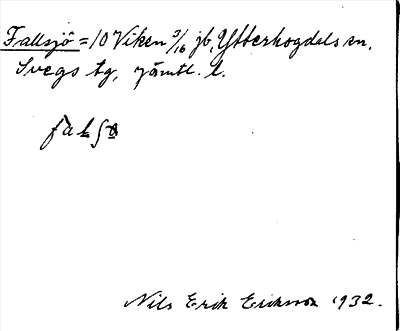 Fallsjö = 10 Viken 3/16 jb, Ytterhogdals sn.
Svegs tg, Jämtl. l.
Nils Erik Eriksson 1932.